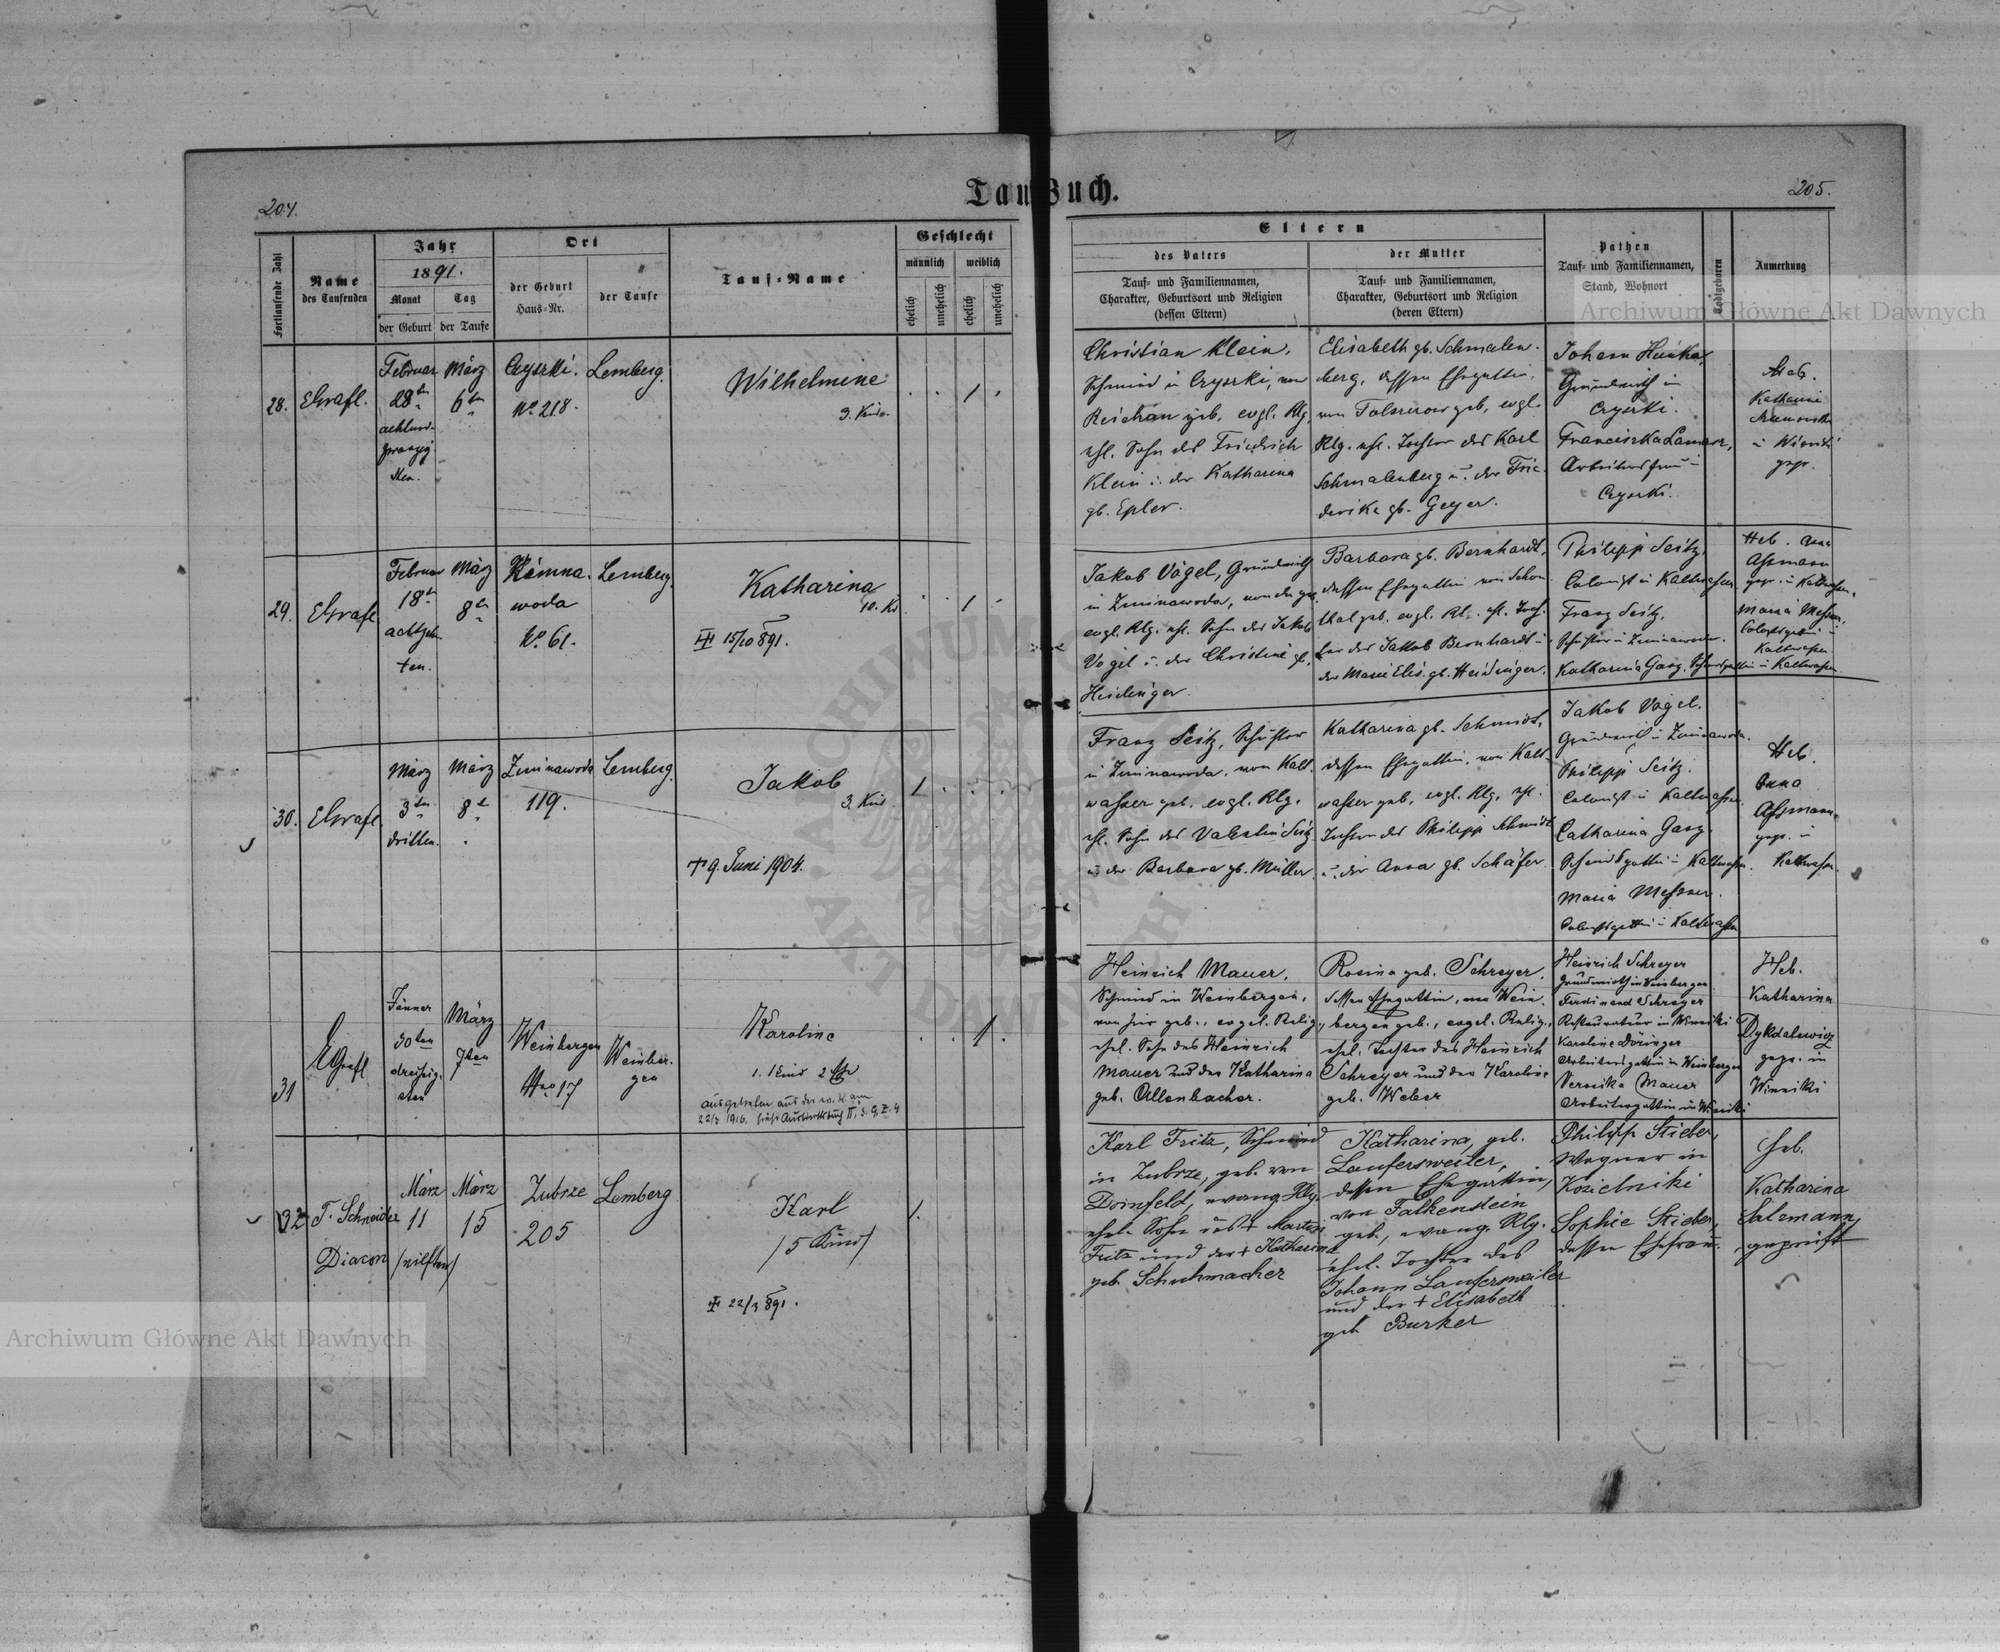 204.
205.
Taufbuch.
Fortlaufende Zahl
Name
des Taufenden
Jahr
1891.
Monat
der Geburt
Tag
der Taufe
Ort
der Geburt
Haus-Nr.
der Taufe
Tauf-Name
Geschlecht
männlich
weiblich
ehelich
unehelich
ehelich
unehelich
Eltern
des Vaters
Tauf- und Familiennamen,
Charakter, Geburtsort und Religion
(dessen Eltern)
der Mutter
Tauf- und Familiennamen,
Charakter, Geburtsort und Religion
(deren Eltern)
Pathen
Tauf- und Familiennamen,
Stand, Wohnort
Todtgeboren
Anmerkung
28.
Februar
28ten
achtund-
zwanzig
sten.
März
6ten
Czyszki.
No. 218.
Lemberg.
Wilhelmine
Christian Klein,
Schmied in Czyszki, von
Reichau geb, evgl. Rlg,
ehl. Sohn des Friedrich
Klein u. der Katharina
gb. Epler.
Elisabeth gb. Schmalen-
berg, dessen Ehegattin,
von geb, evgl.
Rlg. ehl. Tochter des Karl
Schmalenberg u. der Frie-
derike gb. Geyer.
Johann
Grundwirth in
Czyszki.
Franciszka
Arbeitersfrau in
Czyszki.
Heb.
Katharina
in Winniki
gepr.
29.
Februar
18t
achtzehn-
ten.
März
8ten
Zimna-
woda
No. 61.
Lemberg.
Katharina
10. Kd
15/10 891.
Jakob Vogel, Grundwirth
in Zimnawoda, von da geb
evgl. Rlg. ehl. Sohn des Jakob
Vogel u. der Christine gb.
Heidinger.
Barbara gb. Bernhardt,
dessen Ehegattin von Schön-
thal geb. evgl. Rl. ehl. Toch-
ter des Jakob Bernhardt u.
der Marie Elis. gb. Heidinger.
Philipp Seitz,
Colonist in Kaltwasser.
Franz Seitz,
Schuster in Zimnawoda.
Katharina Garg, in Kaltwasser
Heb. Anna
Aßmann
gepr. in Kaltwasser.
Maria Meßner,
Colonistgattin in
Kaltwasser
30.
März
3ten
dritten.
März
8t
Zimnawoda
119.
Lemberg.
Jakob
3. Kind
+ 9. Juni 1904.
Franz Seitz, Schuster
in Zimnawoda, von Kalt-
wasser geb. evgl. Rlg.
ehl. Sohn des Valentin Seitz
u. der Barbara gb. Müller.
Katharina gb. Schmidt,
dessen Ehegattin, von Kalt-
wasser geb, evgl. Rlg, ehl.
Tochter des Philipp Schmidt
u. der Anna gb. Schäfer.
Jakob Vogel.
Grundwirth in Zimnawoda.
Philipp Seitz.
Colonist in Kaltwasser.
Catharina Garg.
in Kaltwasser.
Maria Meßner.
Colonistgattin in Kaltwasser
Heb.
Anna
Aßmann,
gepr. in
Kaltwasser.
31
Jänner
30ten
dreißig-
sten
März
7ten
Weinbergen
Nro 17
Weinber-
gen
Karoline
1. Kind 2. Ehe
ausgetreten aus der ev. K. am
22/3 1916. siehe Austrittsbuch II, S. 9, Z. 4
Heinrich Mauer,
Schmied in Weinbergen,
von hier geb., evgel. Relig.,
ehel. Sohn des Heinrich
Mauer und der Katharina
geb. Allenbacher.
Rosina geb. Schreyer,
dessen Ehegattin, von Wein-
bergen geb., evgel. Relig.,
ehel. Tochter des Heinrich
Schreyer und der Karoline
geb. Weber
Heinrich Schreyer
Grundwirth in Weinbergen
Ferdinand Schreyer
Restaurateur in Winniki
Karoline Döringer
Arbeitersgattin in Weinbergen
Veronika Mauer
Arbeitersgattin in Winniki
Heb.
Katharina
Dykdalewicz
gepr. in
Winniki
32
T. Schneider
Diacon
März
11
/eilften/
März
15
Zubrze
205
Lemberg
Karl
/5 Kind/
22/3 891.
Karl Fritz, Schmied
in Zubrze, geb. von
Dornfeld, evang. Rlg.
ehel. Sohn des + Martin
Fritz und der + Katharina
geb. Schuhmacher
Katharina, geb.
Laufersweiler,
dessen Ehegattin,
von Falkenstein
geb., evang. Rlg.
ehel. Tochter des
Johann Laufersweiler
und der + Elisabeth
geb Burker
Philipp Stieber,
Wagner in
Kozielniki
Sophie Stieber,
dessen Ehefrau.
Heb.
Katharina
Salzmann,
geprüft
Archiwum Główne Akt Dawnych
Archiwum Główne Akt Dawnych